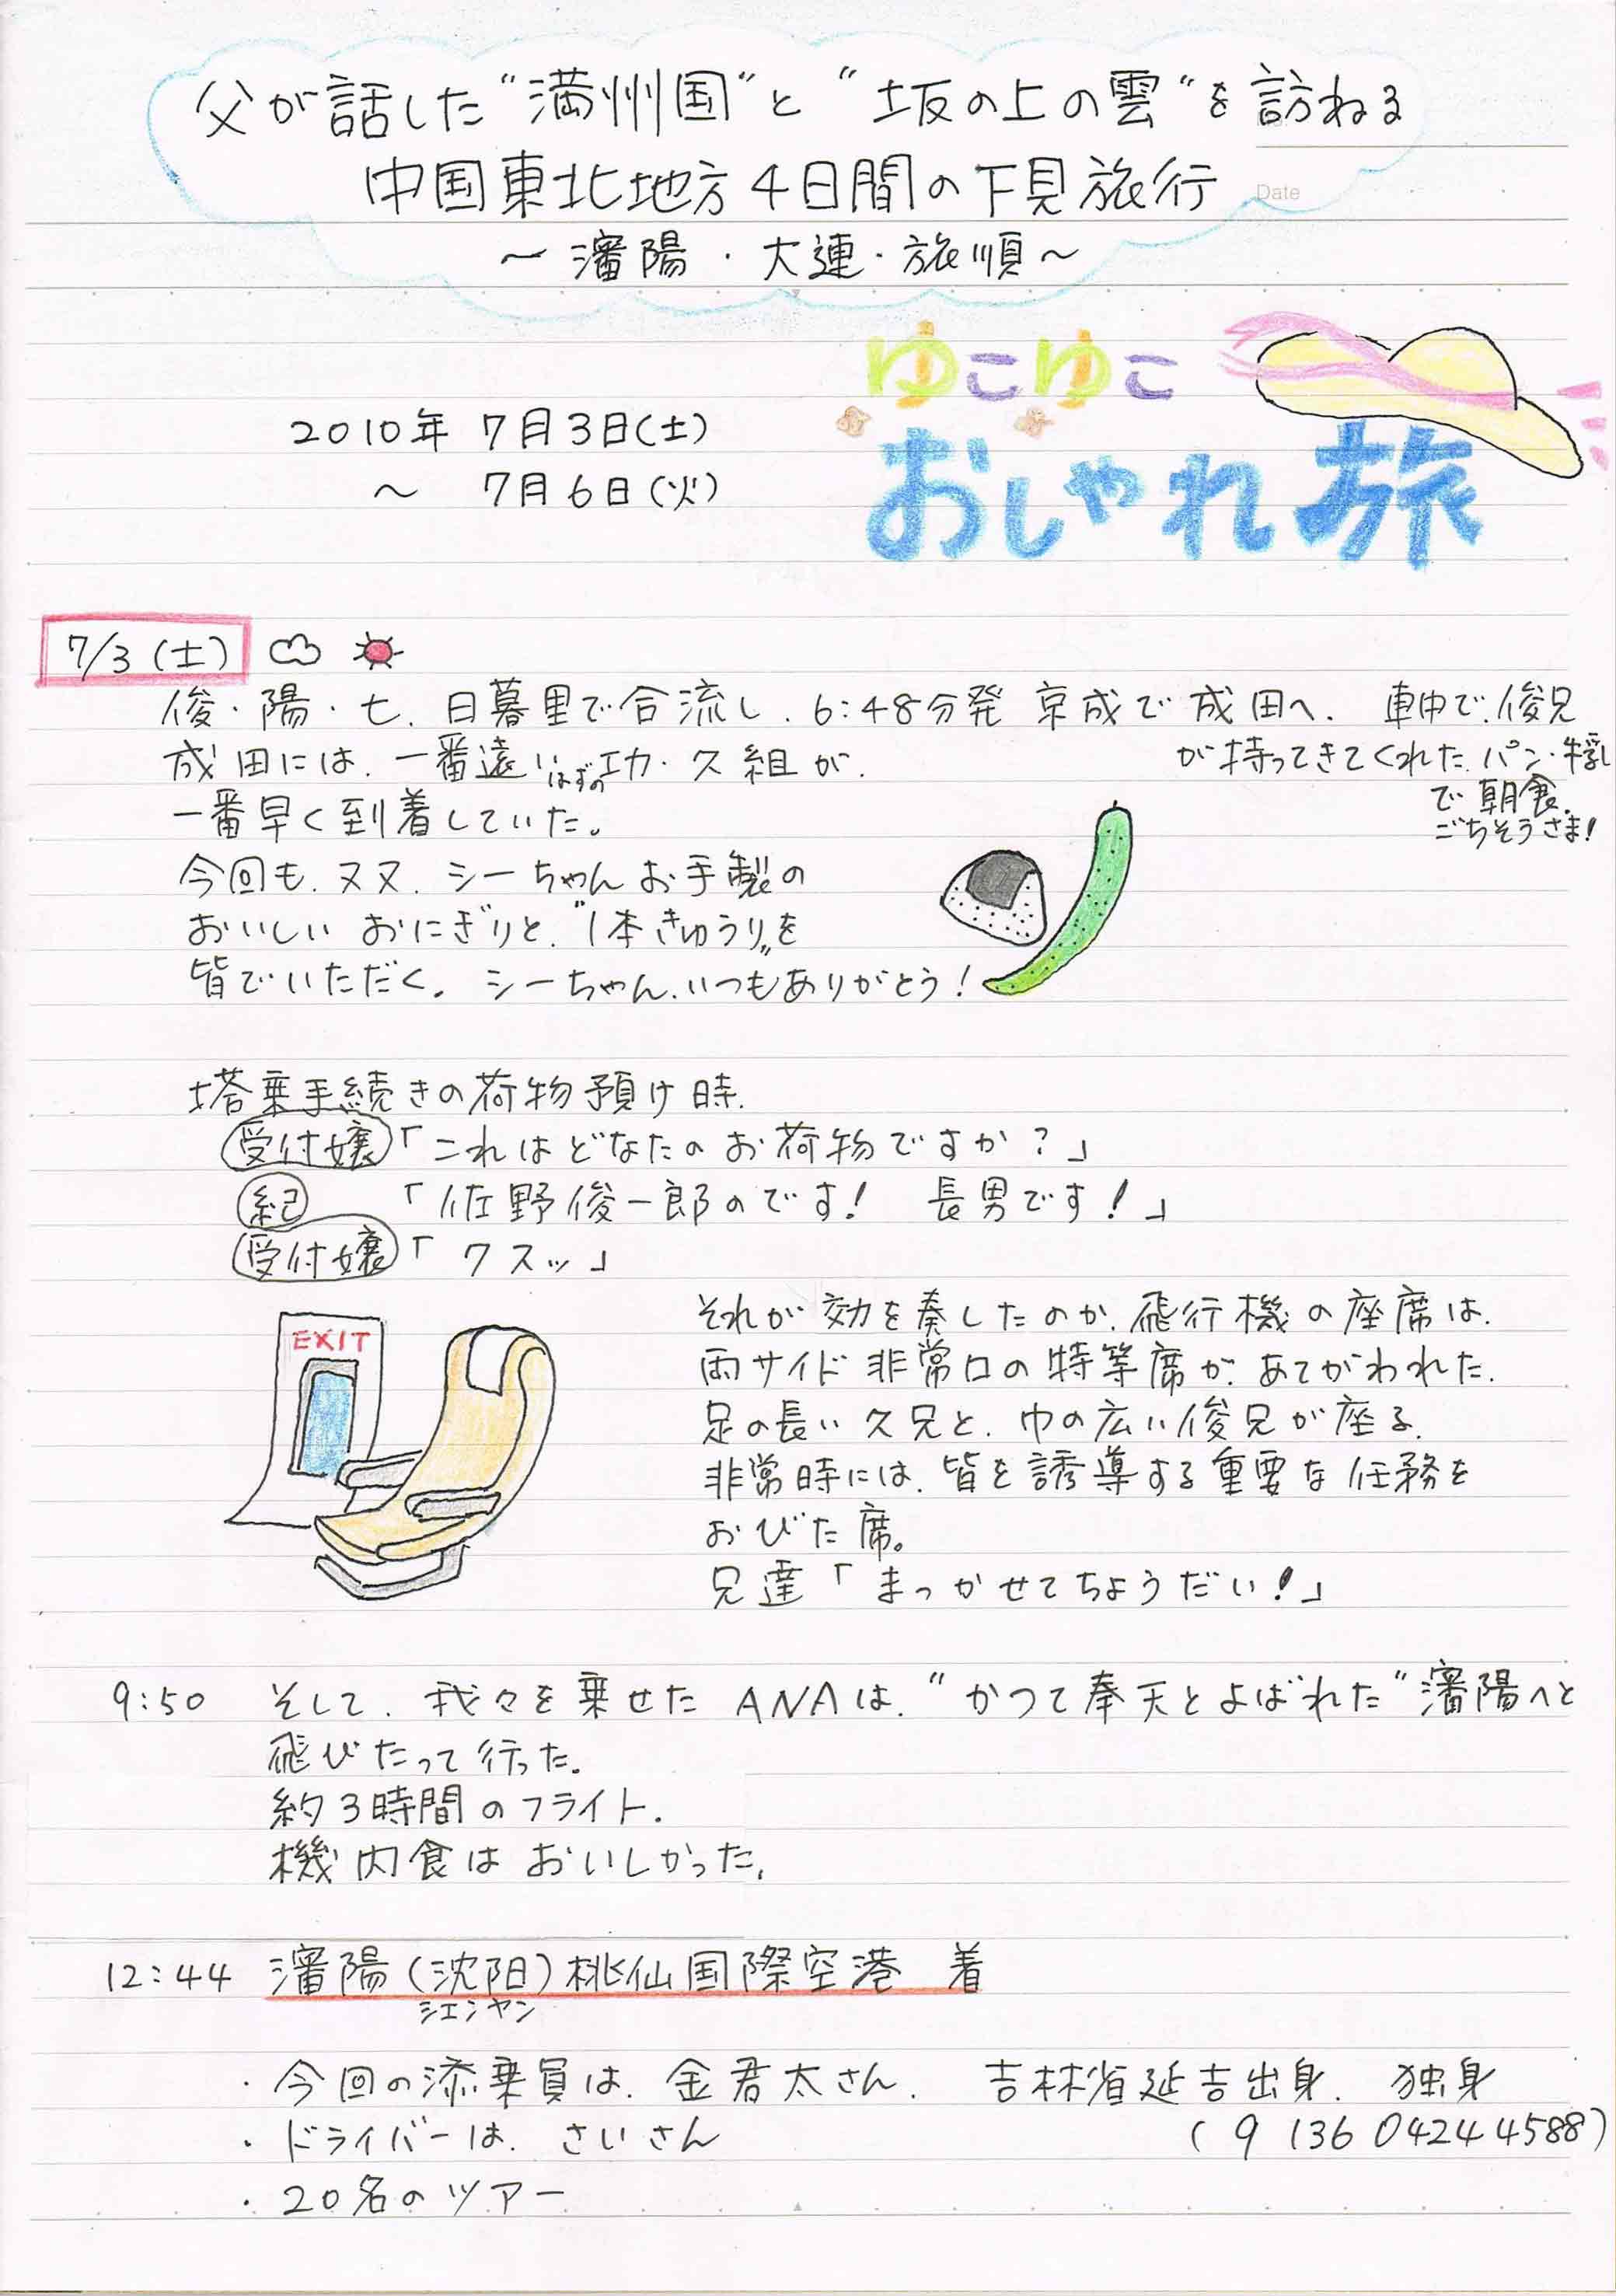 父が話した"満州国"と"坂の上の雲"を訪ねる
中国東北地方4日間の下見旅行
Date
～瀋陽・大連・旅順～
ゆこゆこ
おしゃれ旅
2010年 7月3日(土)
～ 7月6日(火)
7/3(土)
俊・陽・七、日暮里で合流し、6:48分発 京成で成田へ。 車中で、俊兄
が持ってきてくれた、パン・牛乳
で朝食。
ごちそうさま!
成田には、一番遠いはずの功・久組が、
一番早く到着していた。
今回も、又又、シーちゃんお手製の
おいしい おにぎりと、"1本きゅうり"を
皆でいただく。 シーちゃん、いつもありがとう!
塔乗手続きの荷物預け時、
受付嬢「これはどなたのお荷物ですか?」
紀 「佐野俊一郎のです! 長男です!」
受付嬢「クスッ」
EXIT
それが効を奏したのか、飛行機の座席は、
両サイド非常口の特等席があてがわれた。
足の長い久兄と、巾の広い俊兄が座る。
非常時には、皆を誘導する重要な任務を
おびた席。
兄達「まっかせてちょうだい!」
9:50 そして、我々を乗せた ANAは、"かつて奉天とよばれた"瀋陽へと
飛びたって行った。
約3時間のフライト。
機内食は おいしかった。
12:44 瀋陽(沈阳)桃仙国際空港 着
シェンヤン
・今回の添乗員は、金君太さん。 吉林省延吉出身。 独身
(9 136 0424 4588)
・ドライバーは、さいさん
・20名のツアー